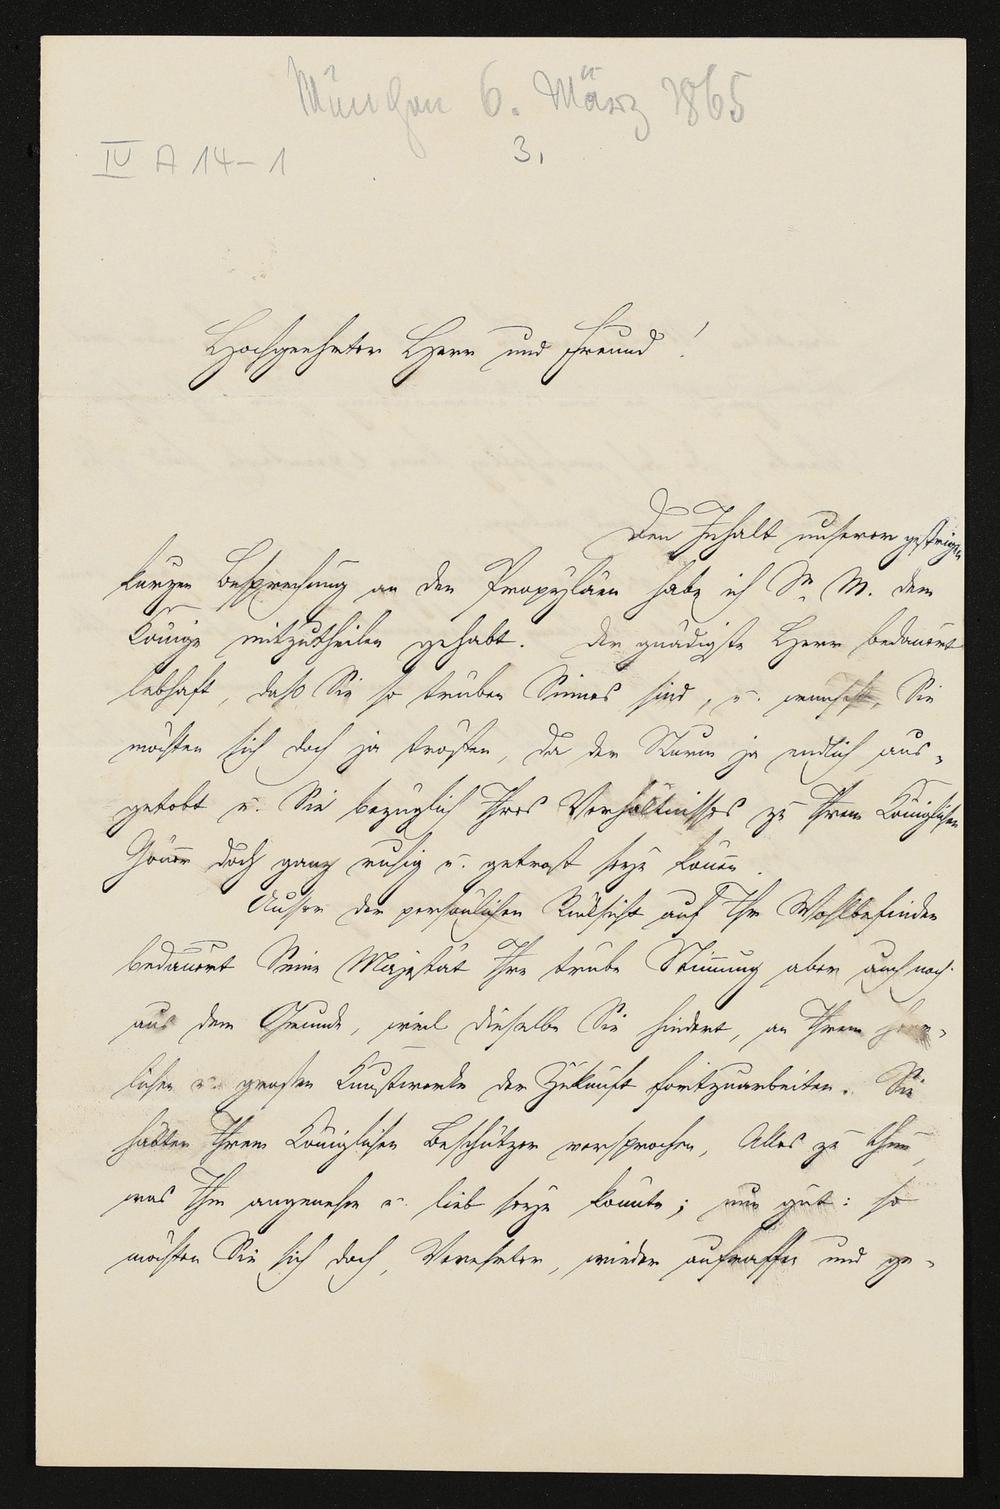 München 6. März 1865
IV A 14-1
3.
Hochgeehrter Herr und Freund!
Den Inhalt unserer gestrigen
kurzen Besprechung an den Propyläen habe ich Sr. M. dem
Könige mitzutheilen gehabt. Der gnädigste Herr bedauert
lebhaft, daß Sie so trüben Sinnes sind, u. wünscht, Sie
möchten sich doch ja trösten, da der Sturm ja endlich aus-
getobt u. Sie bezüglich Ihres Verhältnisses zu Ihrem Königlichen
Gönner doch ganz ruhig u. getrost seyn können.
Ausser der persönlichen Rücksicht auf Ihr Wohlbefinden
bedauert Seine Majestät Ihre trübe Stimmung aber auch noch
aus dem Grunde, weil dieselbe Sie hindert, an Ihrem herr-
lichen u. großen Kunstwerke der Zukunft fortzuarbeiten. Sie
hätten Ihrem Königlichen Beschützer versprochen, Alles zu thun,
was Ihm angenehm u. lieb seyn könnte; nun gut: so
möchten Sie sich doch, Verehrter, wieder aufraffen und ge-